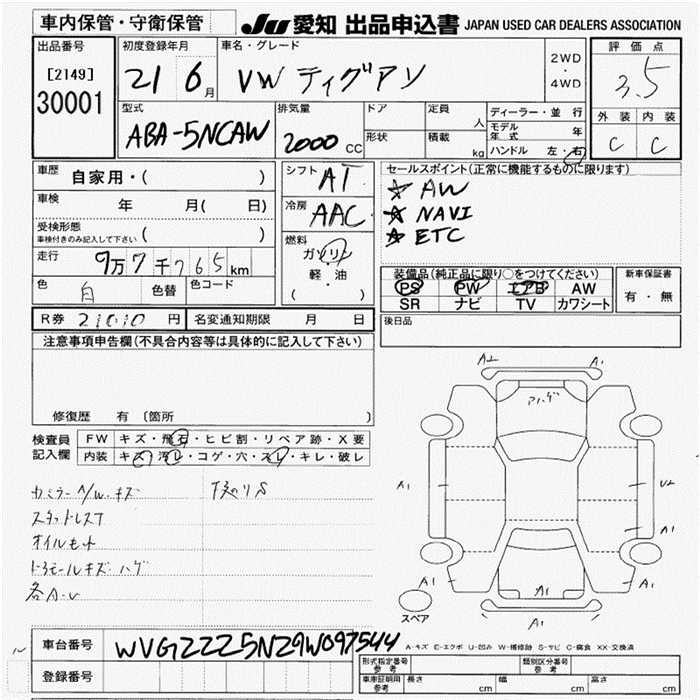 車内保管・守衛保管
JU 愛知 出品申込書 JAPAN USED CAR DEALERS ASSOCIATION
出品番号
[2149]
30001
初度登録年月
21 6月
車名・グレード
VW ティグアン
2WD
・
4WD
評価点
3.5
外装 内装
C C
型式
ABA-5NCAW
排気量
2000 CC
ドア
形状
定員 人
積載 kg
ディーラー・並行
モデル年式 年
ハンドル 左・右
車歴 自家用・( )
車検 年 月( 日)
受検形態
車検付きのみ記入して下さい ( )
走行 9万7千765km
色 白 色替 色コード
シフト AT
冷房 AAC
燃料
ガソリン
軽・油
( )
セールスポイント(正常に機能するものに限ります)
☆ AW
☆ NAVI
☆ ETC
装備品(純正品に限り○をつけてください)
PS PW エアB AW
SR ナビ TV カワシート
新車保証書
有・無
R券 21010 円 名変通知期限 月 日
後日品
注意事項申告欄(不具合内容等は具体的に記入して下さい)
修復歴 有〔箇所 〕
検査員
記入欄
FW キズ・飛石・ヒビ割・リペア跡・X要
内装 キズ・汚レ・コゲ・穴・スレ・キレ・破レ
A/W・キズ
下廻りS
スタッドレスT
オイルもれ
キズ ハゲ
各A・U
A2 A1
アハゲ
A1 U2
A1
A1 A1 A1
A1
スペア
A-キズ E-エクボ U-凹み W-補修跡 S-サビ C-腐食 XX-交換済
車台番号 WVGZZZ5NZ9W097544
登録番号
形式指定番号
参考
類別区分番号
参考
車庫証明用
参考
長さ cm 幅 cm 高さ cm